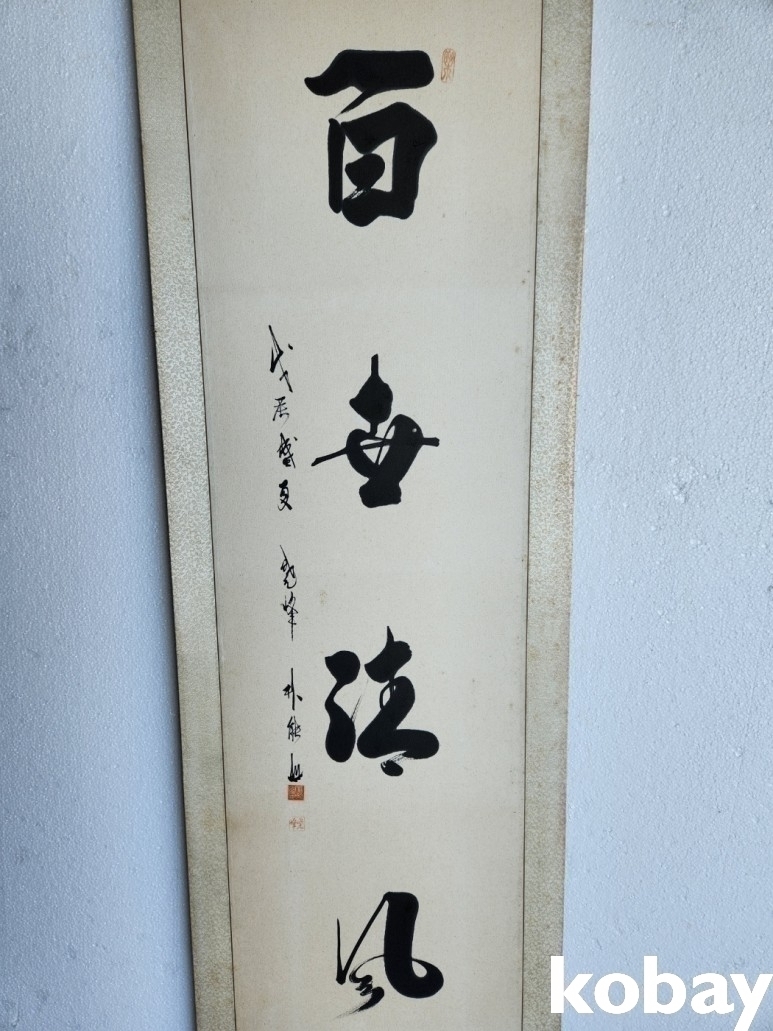 百世清風
戊辰盛夏 堯峰 朴能
kobay